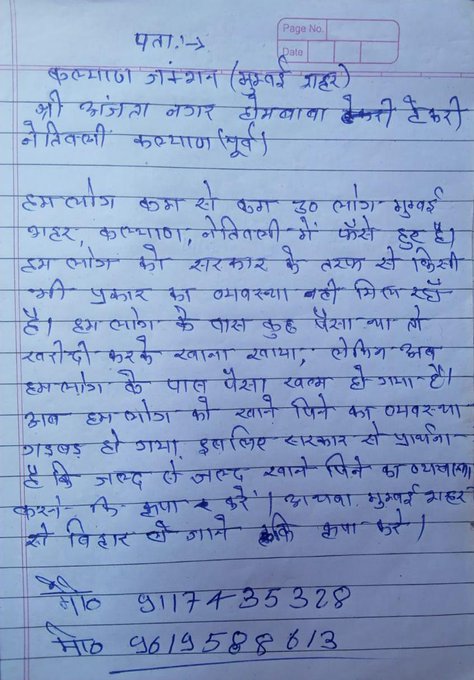 Page No.
Date
पता:→
कल्याण जंक्शन (मुम्बई शहर)
श्री अंजता नगर होमबाबा टेकरी
नेतिवली कल्याण (पूर्व)
हम लोग कम से कम 30 लोग मुम्बई
शहर, कल्याण, नेतिवली में फँसे हुए है।
हम लोग को सरकार के तरफ से किसी
भी प्रकार का व्यवस्था नही मिल रहाँ
है। हम लोग के पास कुछ पैसा था तो
खरीदी करके खाना खाया, लेकिन अब
हम लोग के पास पैसा खत्म हो गया है।
अब हम लोग को खाने पिने का व्यवस्था
गड़बड़ हो गया, इसलिए सरकार से प्रार्थना
है कि जल्द से जल्द खाने पिने का व्यवस्था
करने कि कृपा करें। अथवा मुम्बई शहर
से बिहार ले जाने कि कृपा करे।
मो० 9117435328
मो० 9619588613